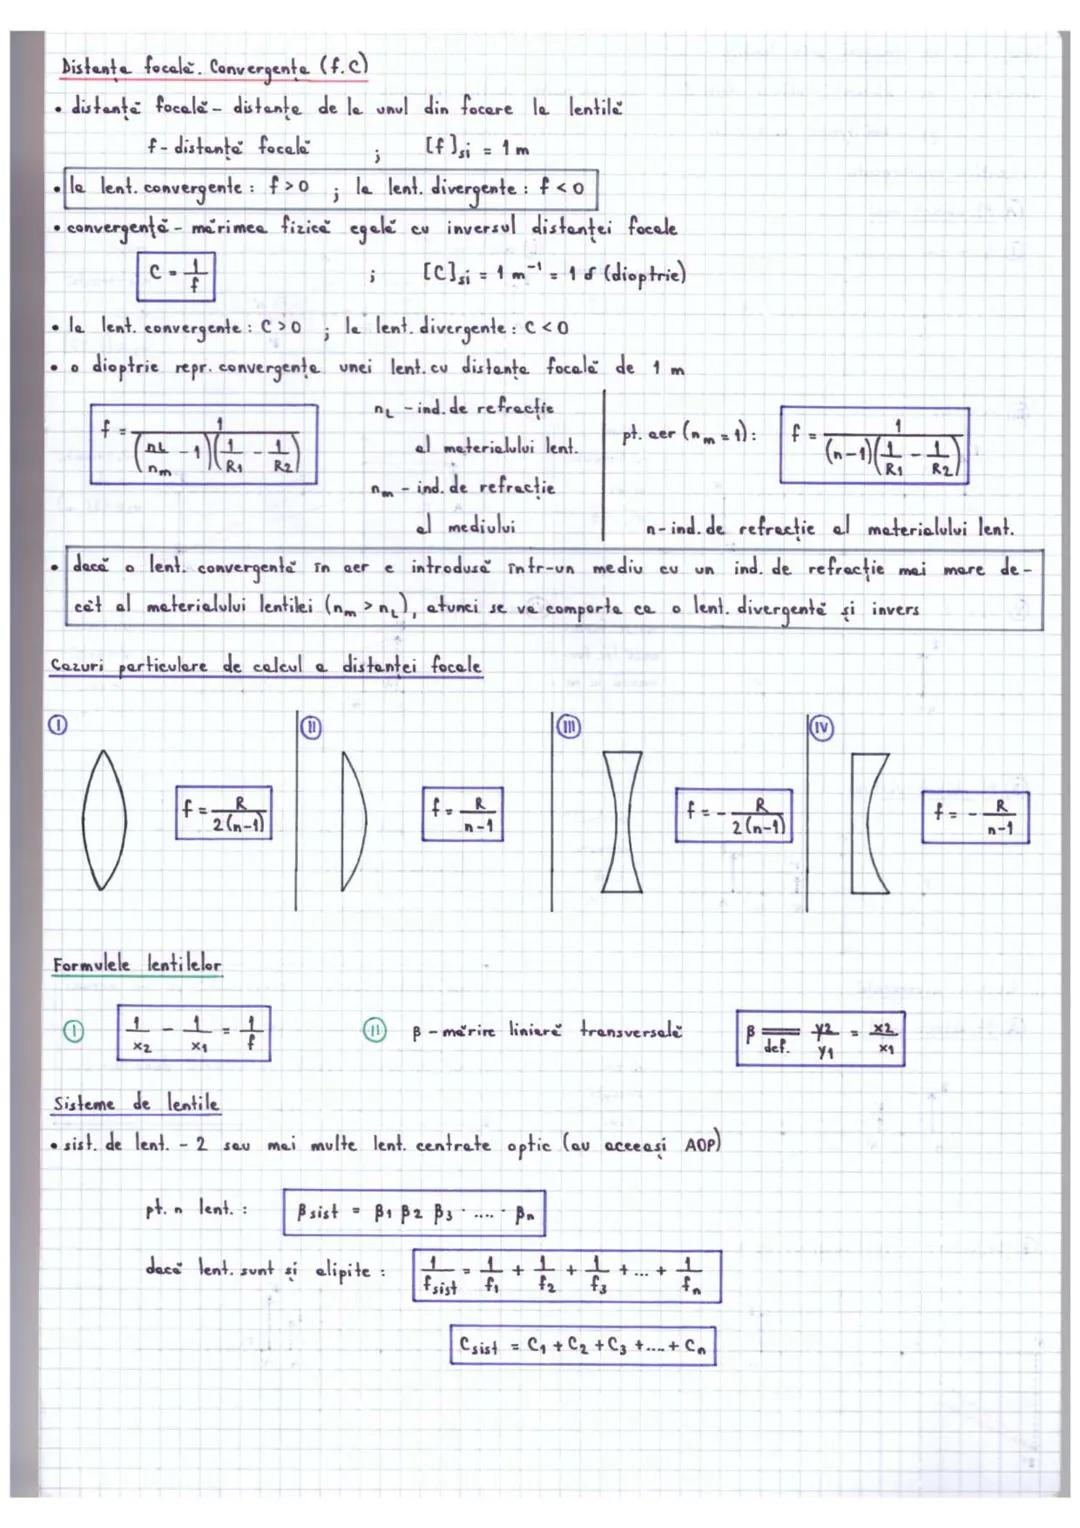 Distanța focală. Convergența (f.C)
• distanță focală - distanța de la unul din focare la lentilă
f - distanță focală ; [f]si = 1 m
• la lent. convergente : f > 0 ; la lent. divergente : f < 0
• convergență - mărimea fizică egală cu inversul distanței focale
C = 1/f ; [C]si = 1 m⁻¹ = 1 δ (dioptrie)
• la lent. convergente : C > 0 ; la lent. divergente : C < 0
• o dioptrie repr. convergența unei lent. cu distanța focală de 1 m
f = 1/((nL/nm - 1)(1/R1 - 1/R2))
nL - ind. de refracție
al materialului lent.
nm - ind. de refracție
al mediului
pt. aer (nm = 1) : f = 1/((n-1)(1/R1 - 1/R2))
n - ind. de refracție al materialului lent.
• dacă o lent. convergentă în aer e introdusă într-un mediu cu un ind. de refracție mai mare de-
cât al materialului lentilei (nm > nL), atunci se va comporta ca o lent. divergentă și invers
Cazuri particulare de calcul a distanței focale
I f = R/2(n-1)
II f = R/n-1
III f = - R/2(n-1)
IV f = - R/n-1
Formulele lentilelor
I 1/x2 - 1/x1 = 1/f
II β - mărire liniară transversală β = def. y2/y1 = x2/x1
Sisteme de lentile
• sist. de lent. - 2 sau mai multe lent. centrate optic (au aceeași AOP)
pt. n lent. : βsist = β1 β2 β3 · .... · βn
dacă lent. sunt și alipite : 1/fsist = 1/f1 + 1/f2 + 1/f3 + ... + 1/fn
Csist = C1 + C2 + C3 + .... + Cn